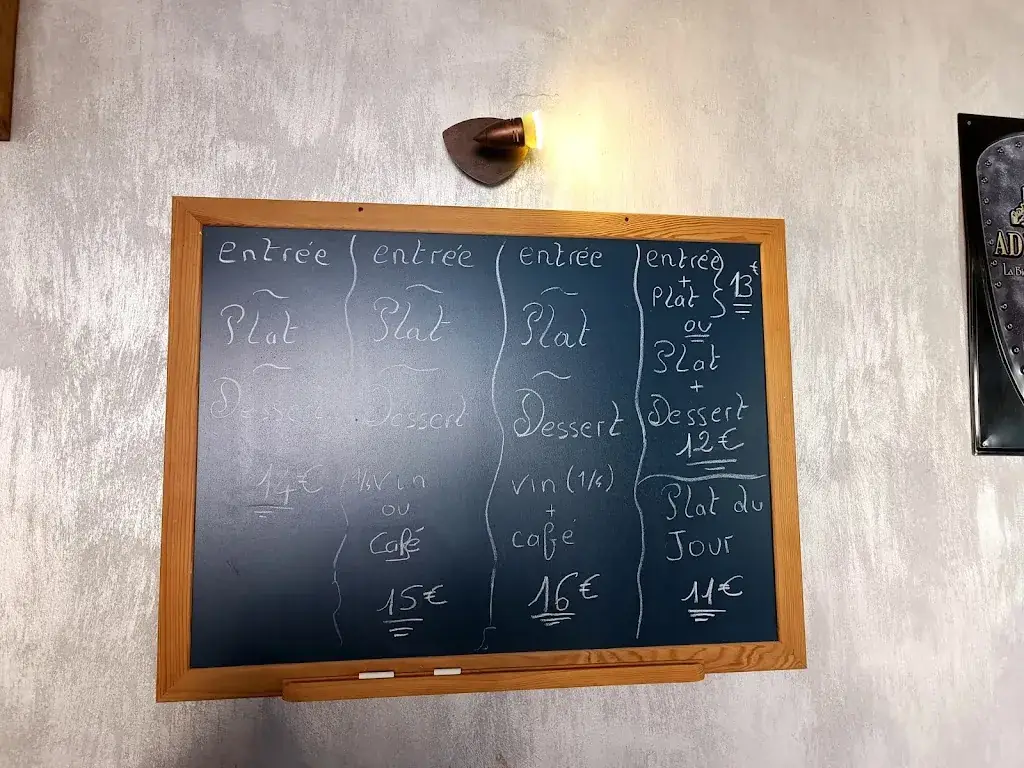 entrée
Plat
Dessert
14€
entrée
Plat
Dessert
1/4 vin
ou
Café
15€
entrée
Plat
Dessert
vin (1/4)
+
café
16€
entrée
+
Plat
13€
ou
Plat
+
Dessert
12€
Plat du
Jour
11€
AD